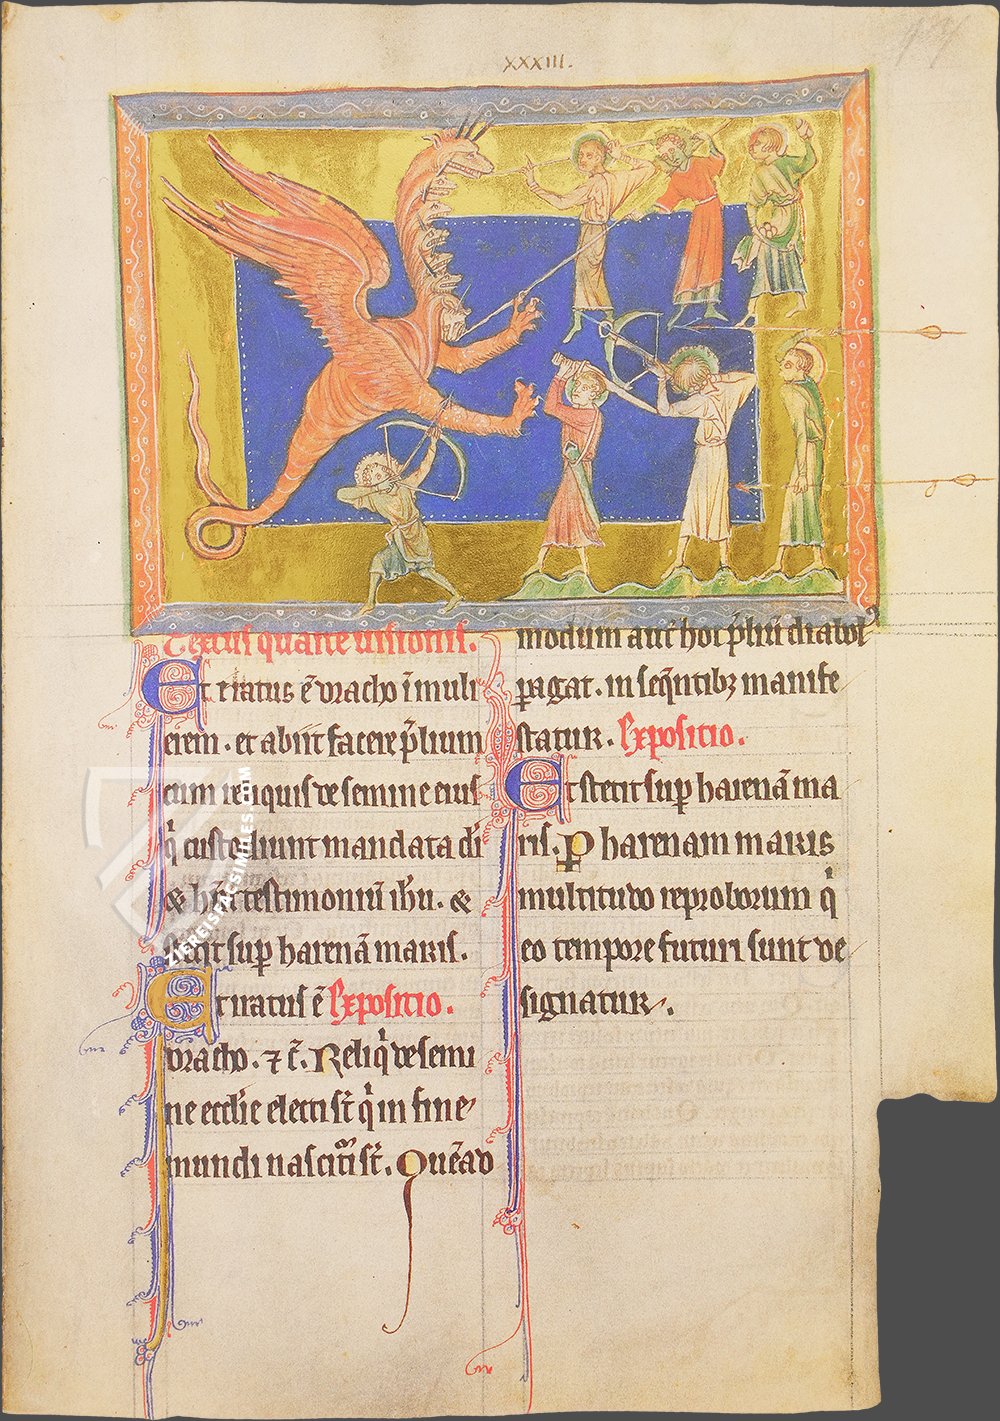 XXXIII.
Textus quarte visionis.
Et iratus ē dracho ī muli
erem. et abiit facere p̄lium
cum reliquis de semine eius
qͥ custodiunt mandata dī
& hn̄t testimoniū ihū. &
stetit suꝑ harenā maris.
Et iratus ē Expositio.
dracho. ⁊ c̄. Reliqͥ de semi
ne eccl̄ie electi st̄ qͥ in fine
mundi nascitͦi st̄. Quēad
modum aut̄ hoc p̄liū diabol᷒
ꝑagat. in seq̄ntibꝫ manife
statur. Expositio.
Et stetit suꝑ harenā ma
ris. P harenam maris
multitudo reproborum q̄
eo tempore futuri sunt de
signatur.
ZIEREIS FACSIMILES.COM